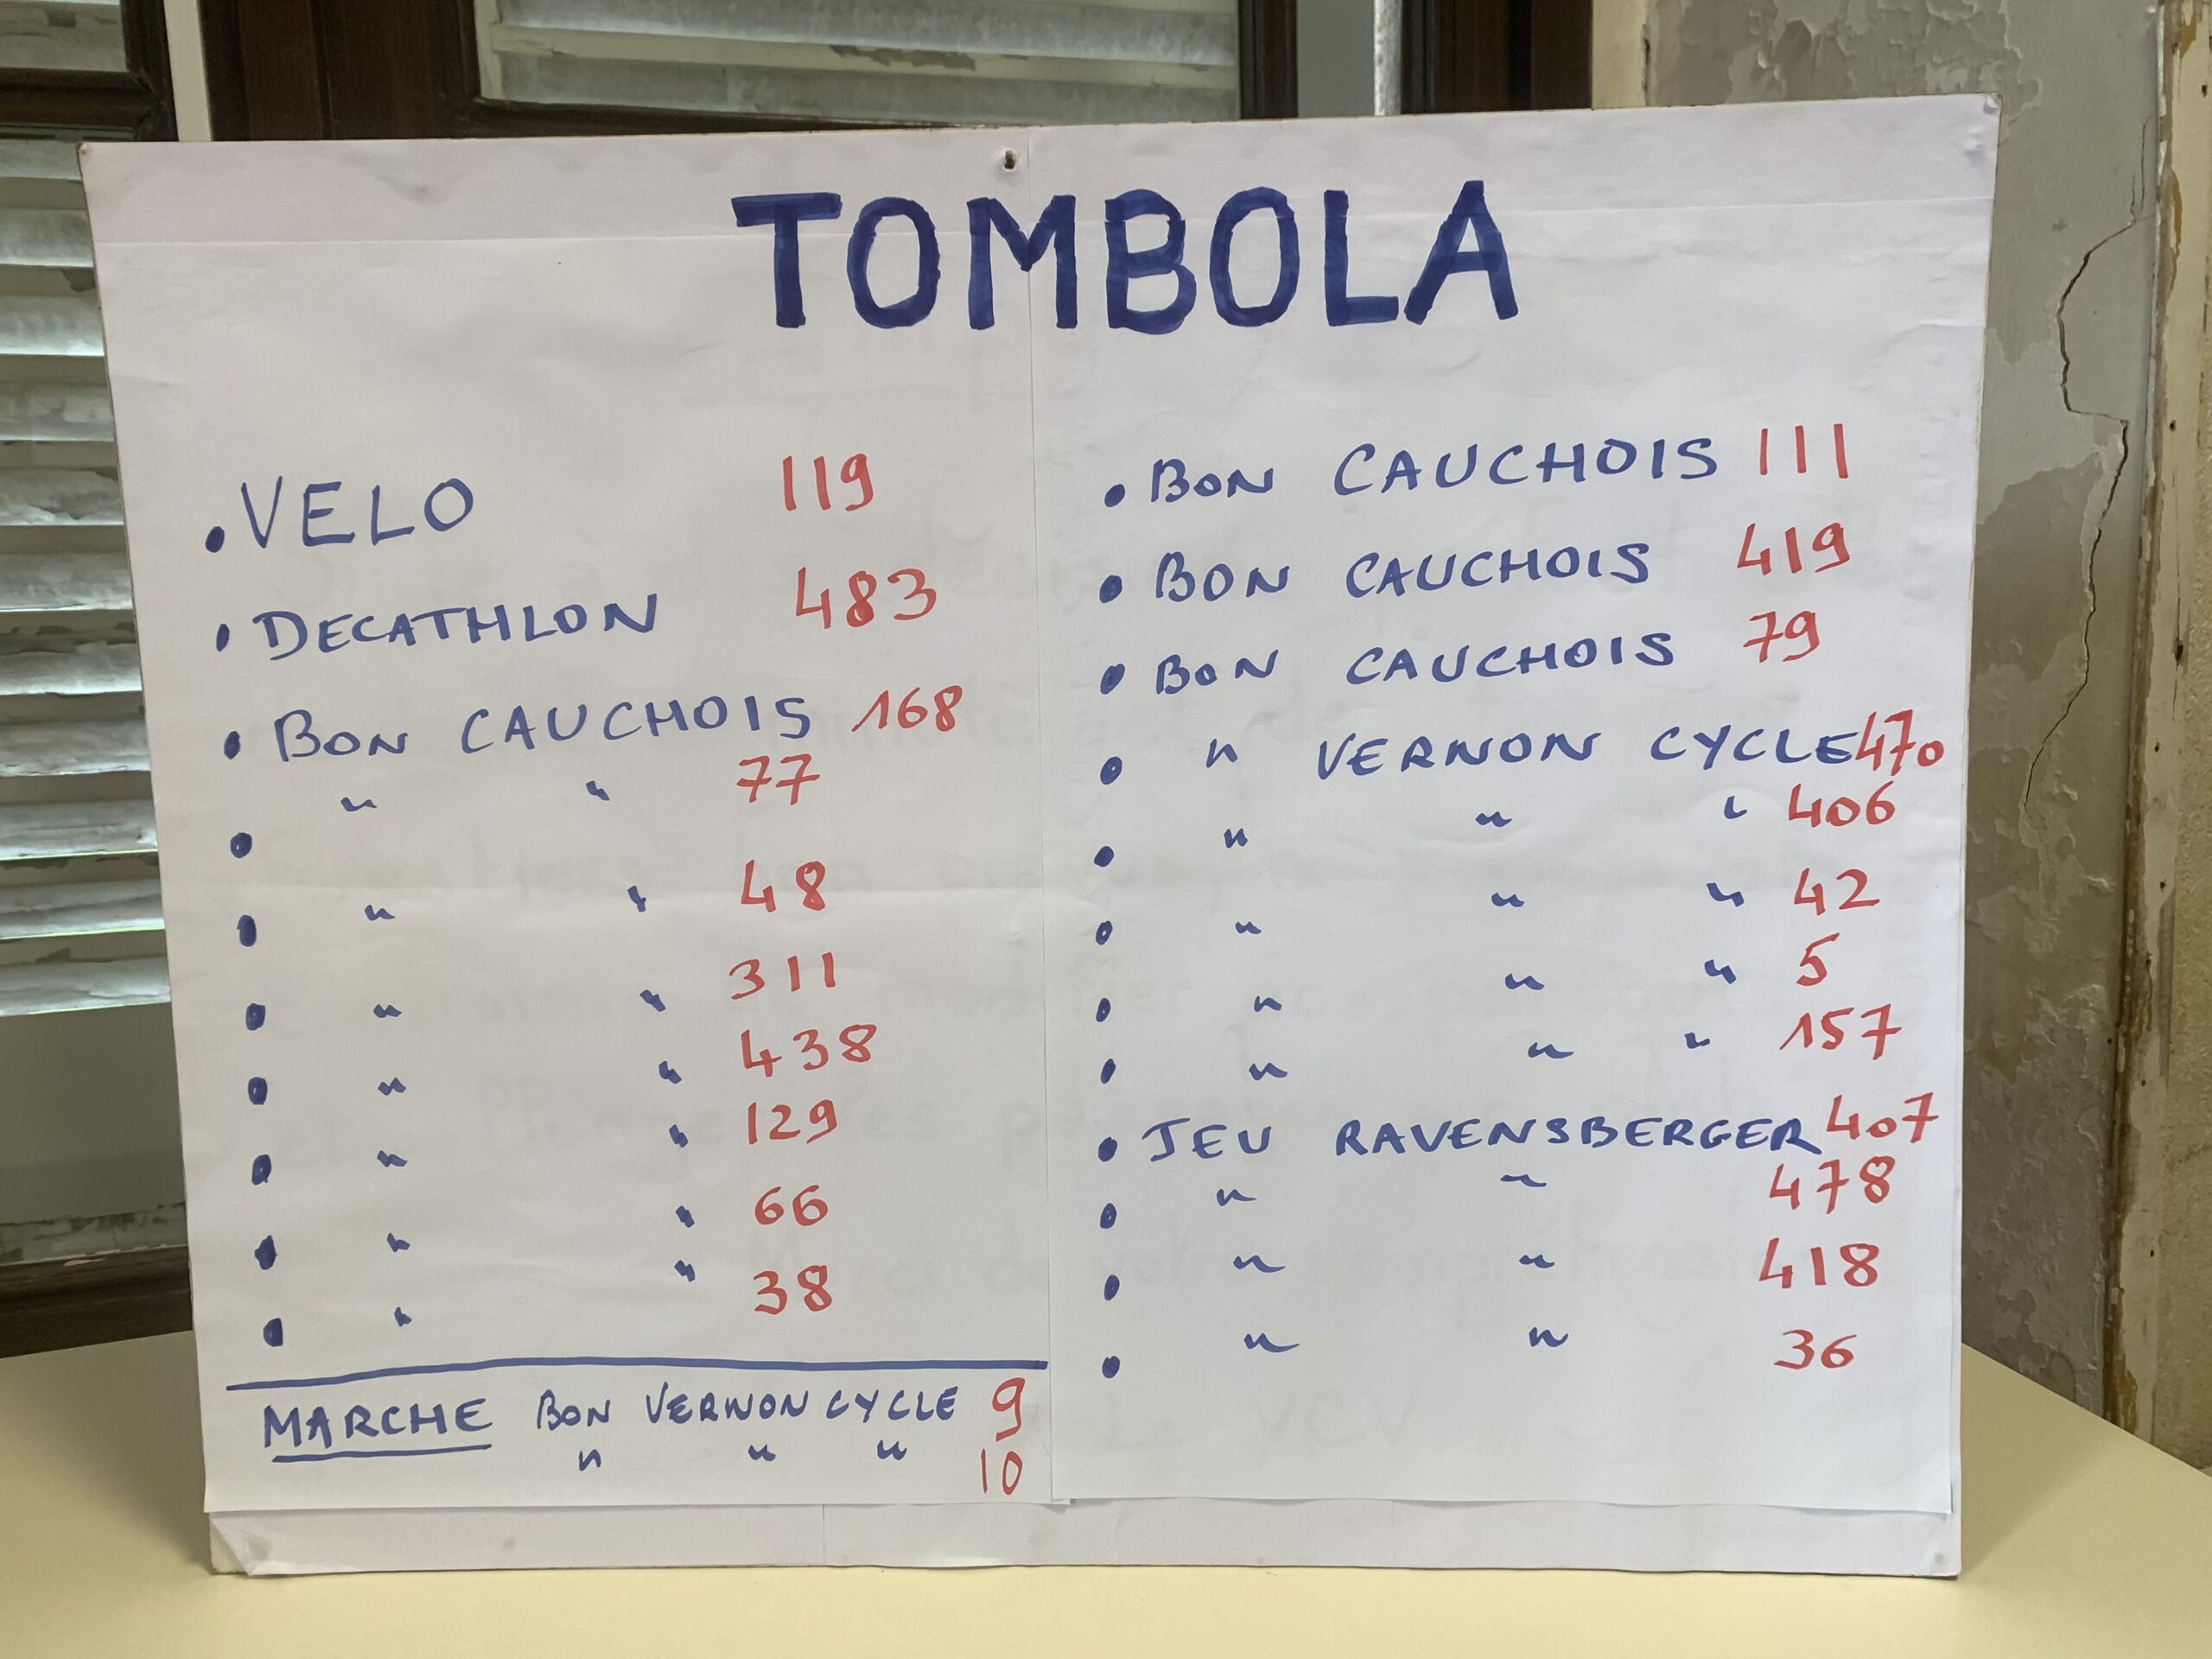 TOMBOLA
• VELO 119
• DECATHLON 483
• BON CAUCHOIS 168
• " " 77
• " " 48
• " " 311
• " " 438
• " " 129
• " " 66
• " " 38
MARCHE BON VERNON CYCLE 9
" " " 10
• BON CAUCHOIS 111
• BON CAUCHOIS 419
• BON CAUCHOIS 79
• " VERNON CYCLE 470
• " " " 406
• " " " 42
• " " " 5
• " " " 157
• JEU RAVENSBERGER 407
• " " 478
• " " 418
• " " 36